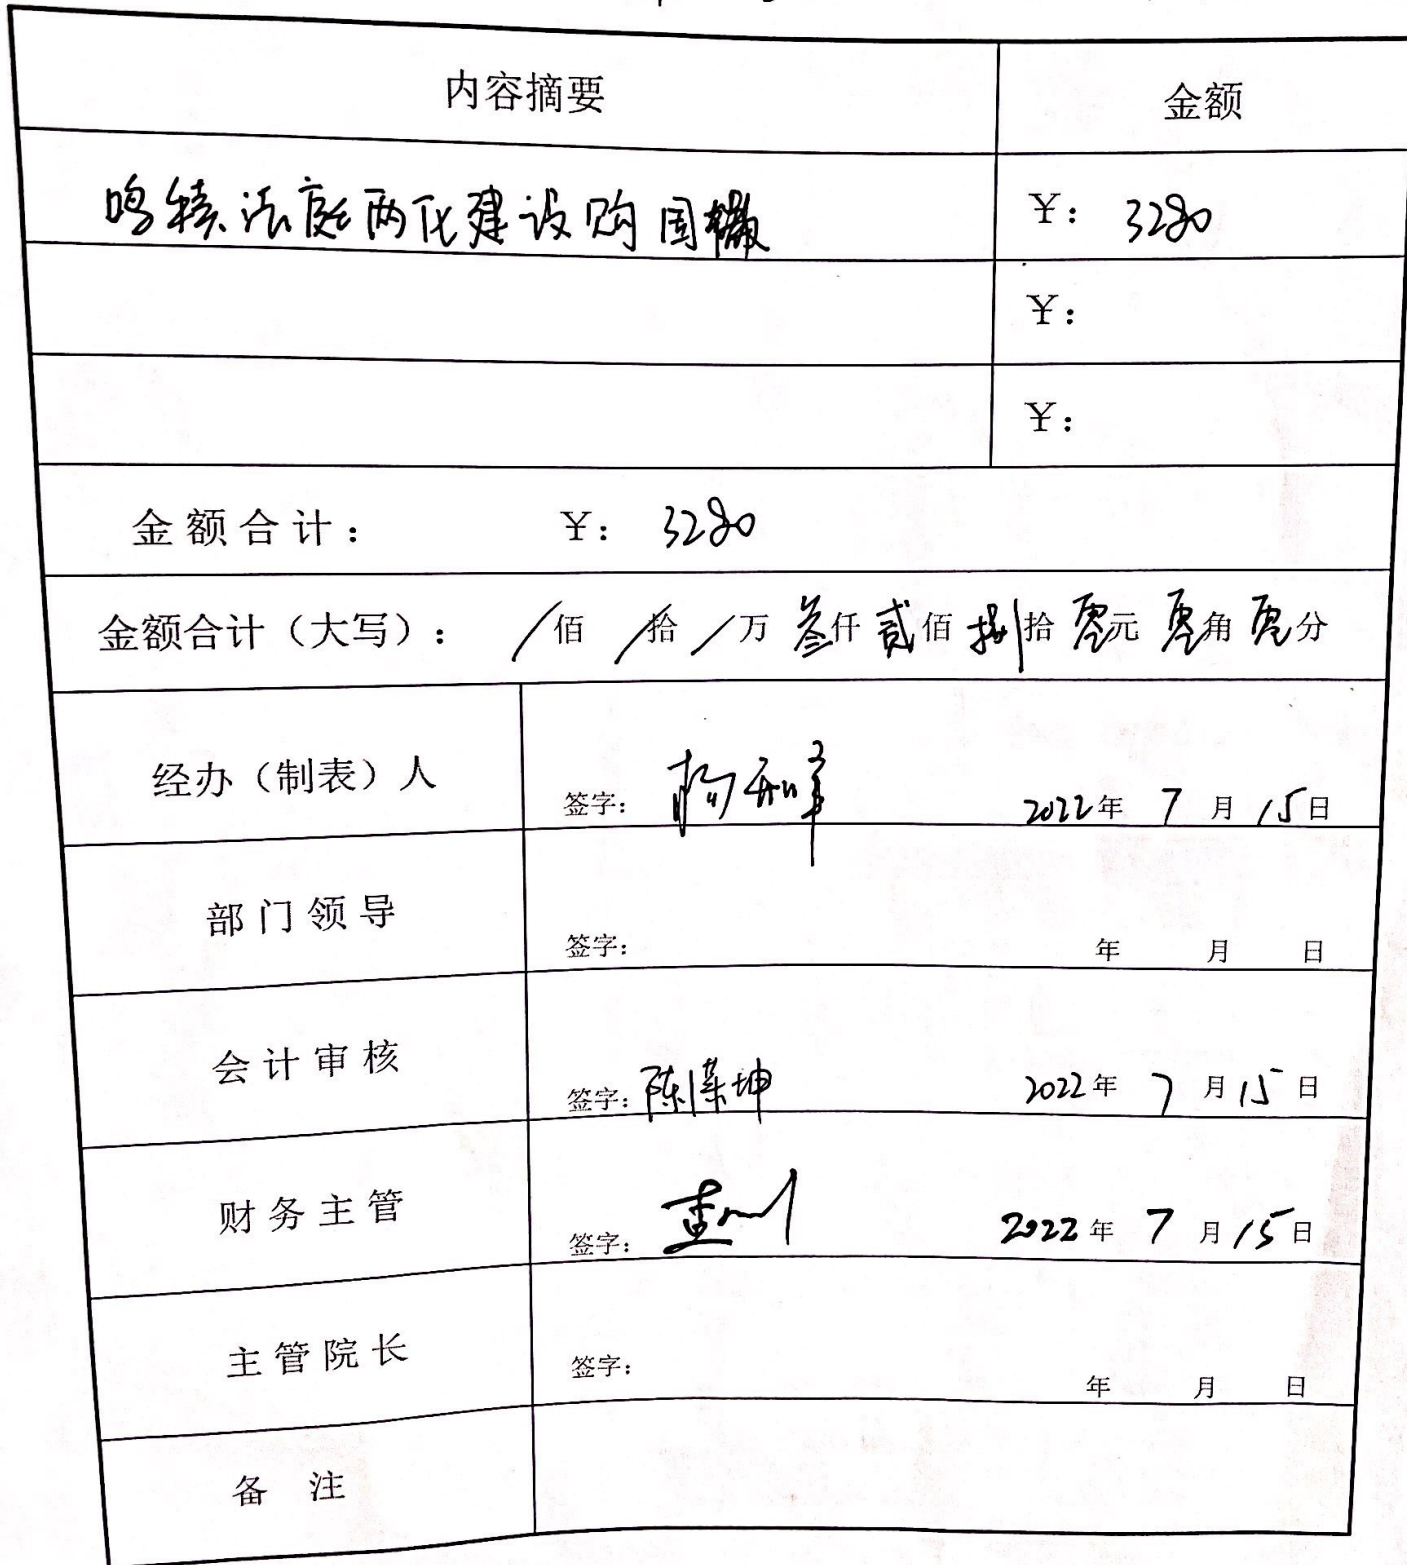 内容摘要 金额
鸣犊法庭两化建设购国徽 ¥: 3280
¥:
¥:
金额合计: ¥: 3280
金额合计(大写): /佰 /拾 /万 叁仟 贰佰 捌拾 零元 零角 零分
经办(制表)人 签字: 2022年 7月 15日
部门领导 签字: 年 月 日
会计审核 签字: 陈 坤 2022年 7月 15日
财务主管 签字: 2022年 7月 15日
主管院长 签字: 年 月 日
备 注